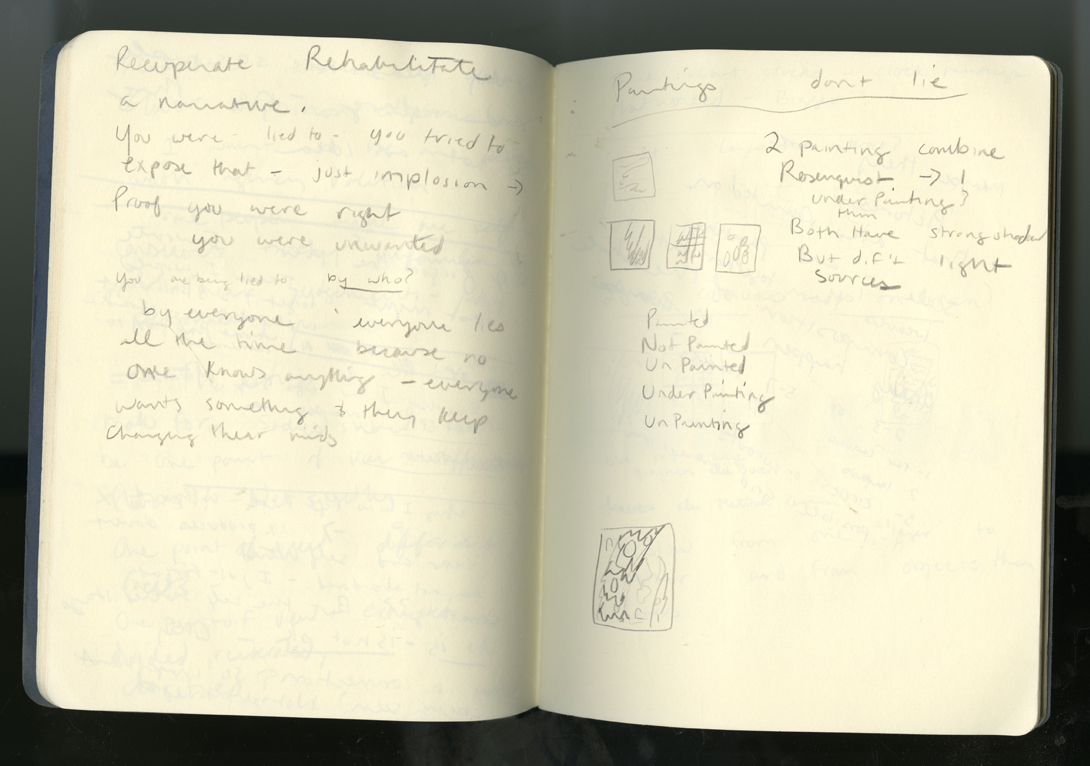 Recuperate Rehabilitate
a narrative.
You were - lied to - you tried to
expose that - just implosion →
Proof you were right
you were unwanted
you are being lied to by who?
by everyone everyone lies
all the time because no
one knows anything - everyone
wants something & they keep
changing thear minds
Paintings dont lie
2 painting combine
Rosenquist → 1
under Painting?
thin
Both Have strong shadow
But difft light
Sources
Painted
Not Painted
Un Painted
Under Painting
UnPainting